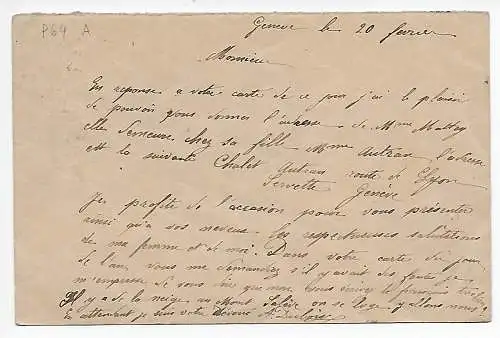 P64 A
Genève le 20 fevrier
Monsieur
En reponse a votre carte de ce jour j'ai le plaisir
de pouvoir vous donner l'adresse de Mme Mattey
elle demeure chez sa fille Mme Autran l'adresse
est la suivante Chalet Autran route de Lyon
Servette Genève
Je profite de l'occasion pour vous présenter
ainsi qu'a vos neveux les respectueuses salutations
de ma femme et de moi. Dans votre carte du jour
de l'an vous me demandiez s'il y avait des fautes je
m'empresse de vous dire que non vous écrivez le français très bien
Il y a de la neige au Mont Salève on se luge y allons nous
En attendant je suis votre dévoué A.